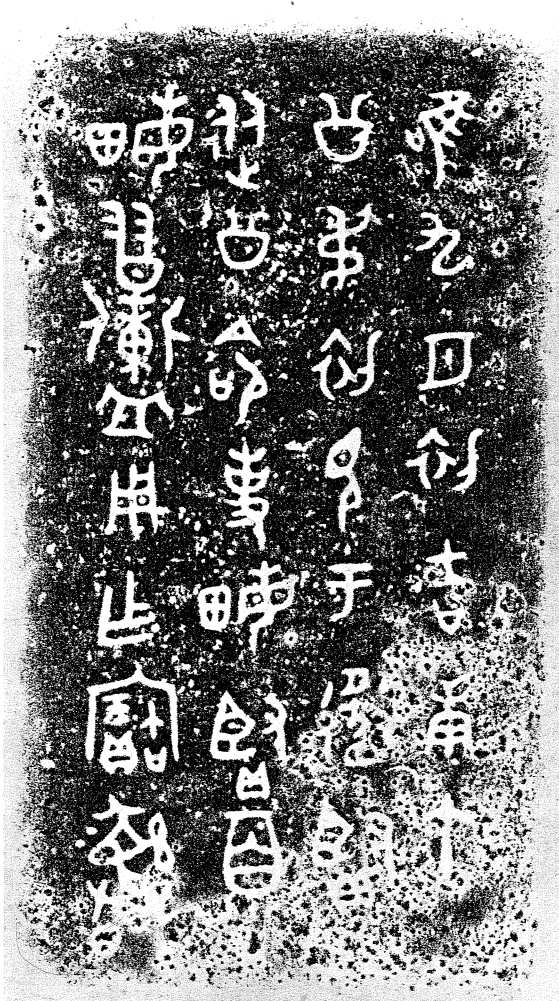 唯九月初吉庚午
公叔初見于衛賢
從公命事畮賢百
畮用作寶彝